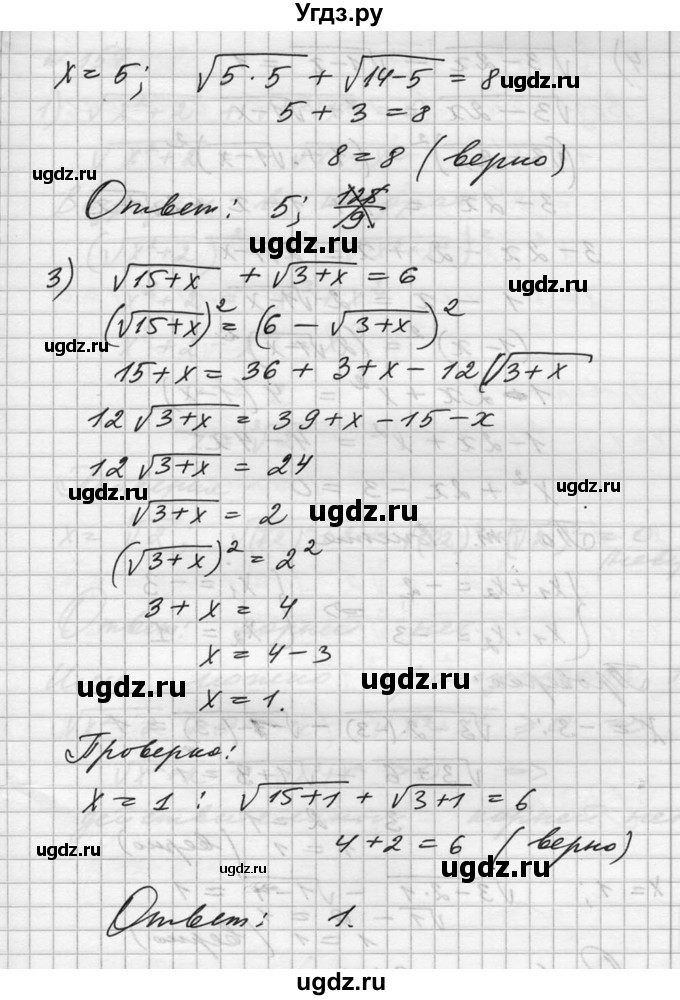 Угдз.ру
x = 5; √(5·5) + √(14-5) = 8
ugdz.ru
5 + 3 = 8
8 = 8 (верно)
ugdz.ru
Ответ: 5; 128/9.
ugdz.ru
3) √(15+x) + √(3+x) = 6
ugdz.ru
(√(15+x))² = (6 - √(3+x))²
ugdz.ru
15+x = 36 + 3+x - 12(√(3+x)
12√(3+x) = 39+x-15-x
12√(3+x) = 24
ugdz.ru ugdz.ru
√(3+x) = 2
ugdz.ru
(√(3+x))² = 2²
3+x = 4
ugdz.ru
x = 4-3
ugdz.ru ugdz.ru
x = 1.
Проверка:
x = 1 : √(15+1) + √(3+1) = 6
4+2 = 6 (верно)
ugdz.ru ugdz.ru ugdz.ru
Ответ: 1.
ugdz.ru
ugdz.ru